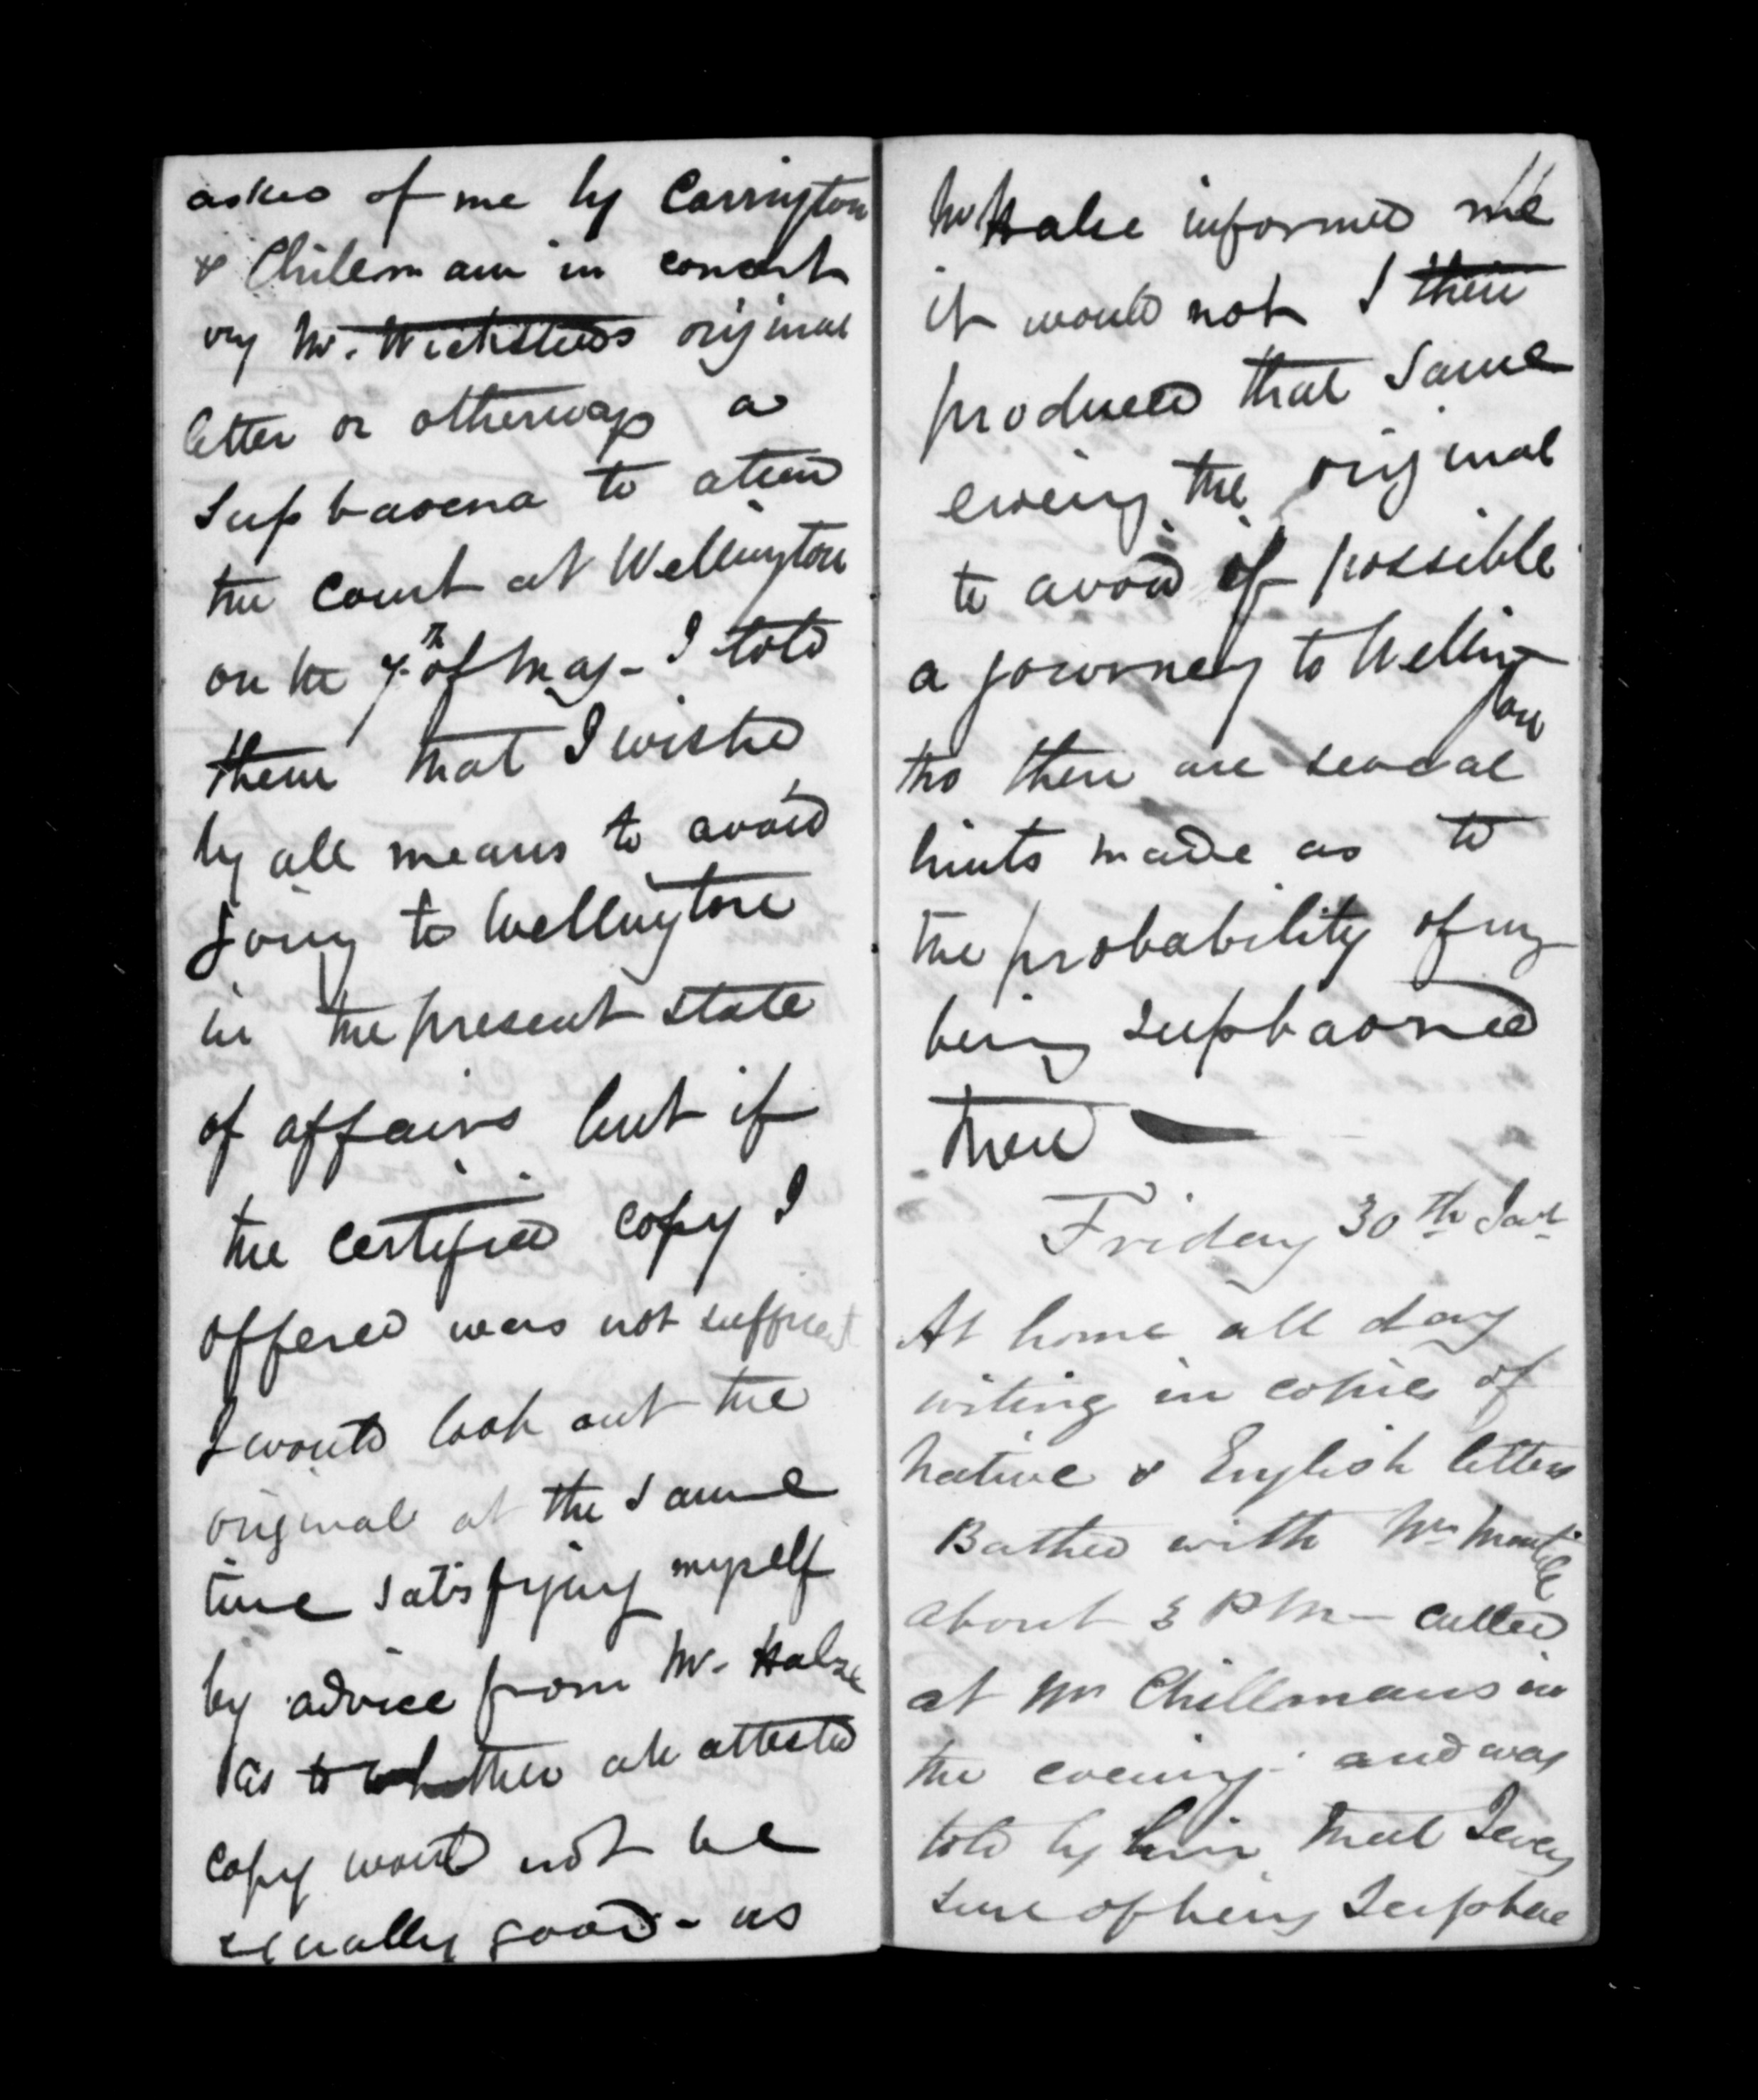 asked of me by Carrington
& Chileman in concert
my Mr. Wicksteeds original
letter or otherways a
Supbaoena to atend
the Court at Wellington
on the 7th of May - I told
them that I wished
by all means to avoid
going to Wellington
in the present state
of affairs but if
the certified copy I
offered was not sufficient
I would look out the
original at the same
time satisfying myself
by advice from Mr. Halse
as to whether an attested
copy would not be
equally good - as
Mr Halse informed me
it would not I then
produced that same
evening the original
to avoid if possible
a journey to Welling
ton
tho there are several
hints made as to
the probability of my
being supbaoned
there —
Friday 30th
At home all day
writing in copies of
Native & English letters
Bathed with Wm
about 3 PM - called
at Mr Chillmans in
the evening - and was
told by him that I was
sure of being Supbae